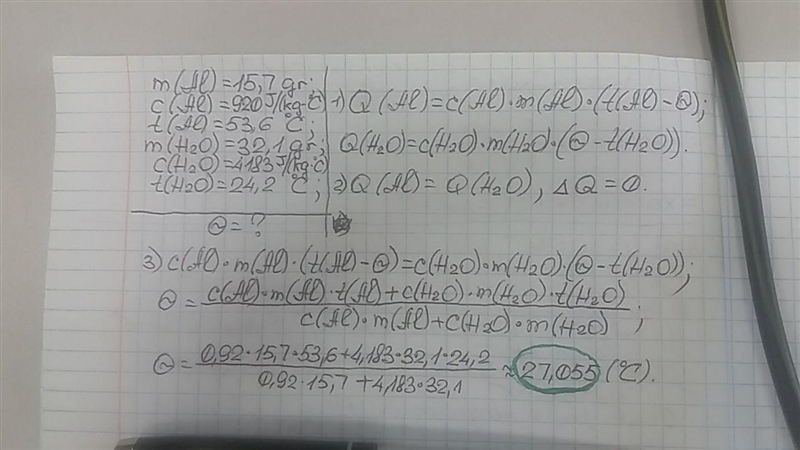 m(Al)=15,7 gr;
c(Al)=920 J/(kg·℃)
t(Al)=53,6 ℃;
m(H₂O)=32,1 gr;
c(H₂O)=4183 J/(kg·℃)
t(H₂O)=24,2 ℃;
Θ=?
1) Q(Al)=c(Al)·m(Al)·(t(Al)-Θ);
Q(H₂O)=c(H₂O)·m(H₂O)·(Θ-t(H₂O)).
2) Q(Al)=Q(H₂O), ΔQ=0.
3) c(Al)·m(Al)·(t(Al)-Θ)=c(H₂O)·m(H₂O)·(Θ-t(H₂O));
Θ=(c(Al)·m(Al)·t(Al)+c(H₂O)·m(H₂O)·t(H₂O))/(c(Al)·m(Al)+c(H₂O)·m(H₂O));
Θ=(0,92·15,7·53,6+4,183·32,1·24,2)/(0,92·15,7+4,183·32,1)≈27,055 (℃).